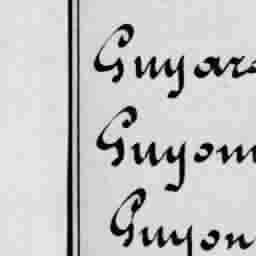 Guyars
Guyom
Guyon